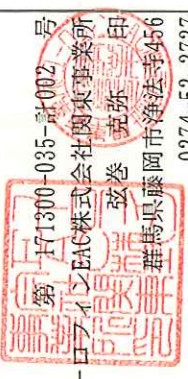 第 171300-035-計002 号
ーロフィンEAC株式会社関東事業所
弦巻 克弥 印
群馬県藤岡市浄法寺456
0274-52-2727